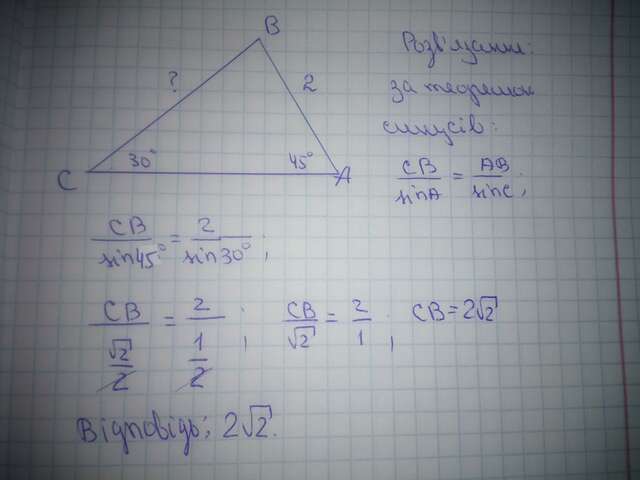 B
? 2
C 30° 45° A
Розв'язання:
за теоремою
синусів:
CB/sinA = AB/sinC;
CB/sin45° = 2/sin30°;
CB/(√2/2) = 2/(1/2); CB/√2 = 2/1; CB=2√2
Відповідь: 2√2.